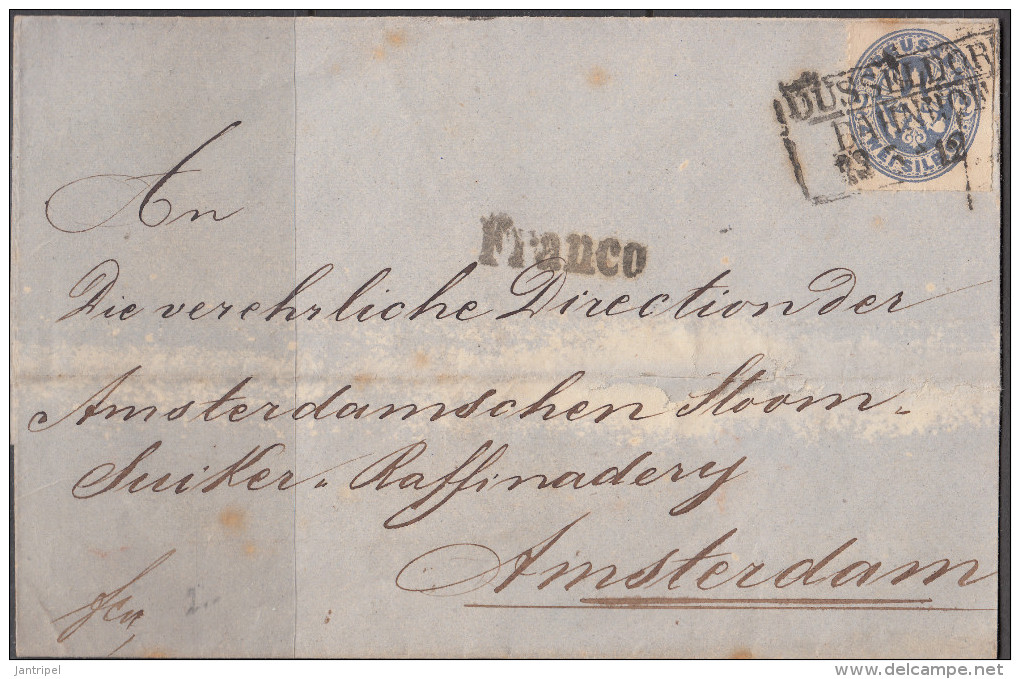 DÜSSELDORF
BAHNHOF
23 12
An
Franco
Die verehrliche Direction der
Amsterdamschen Stoom-
Suiker-Raffinadery
Amsterdam
fco
Jantripel
delcampe.net